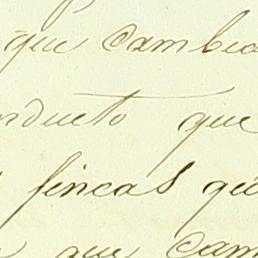 que cambia
nducto que
fincas que
que cam